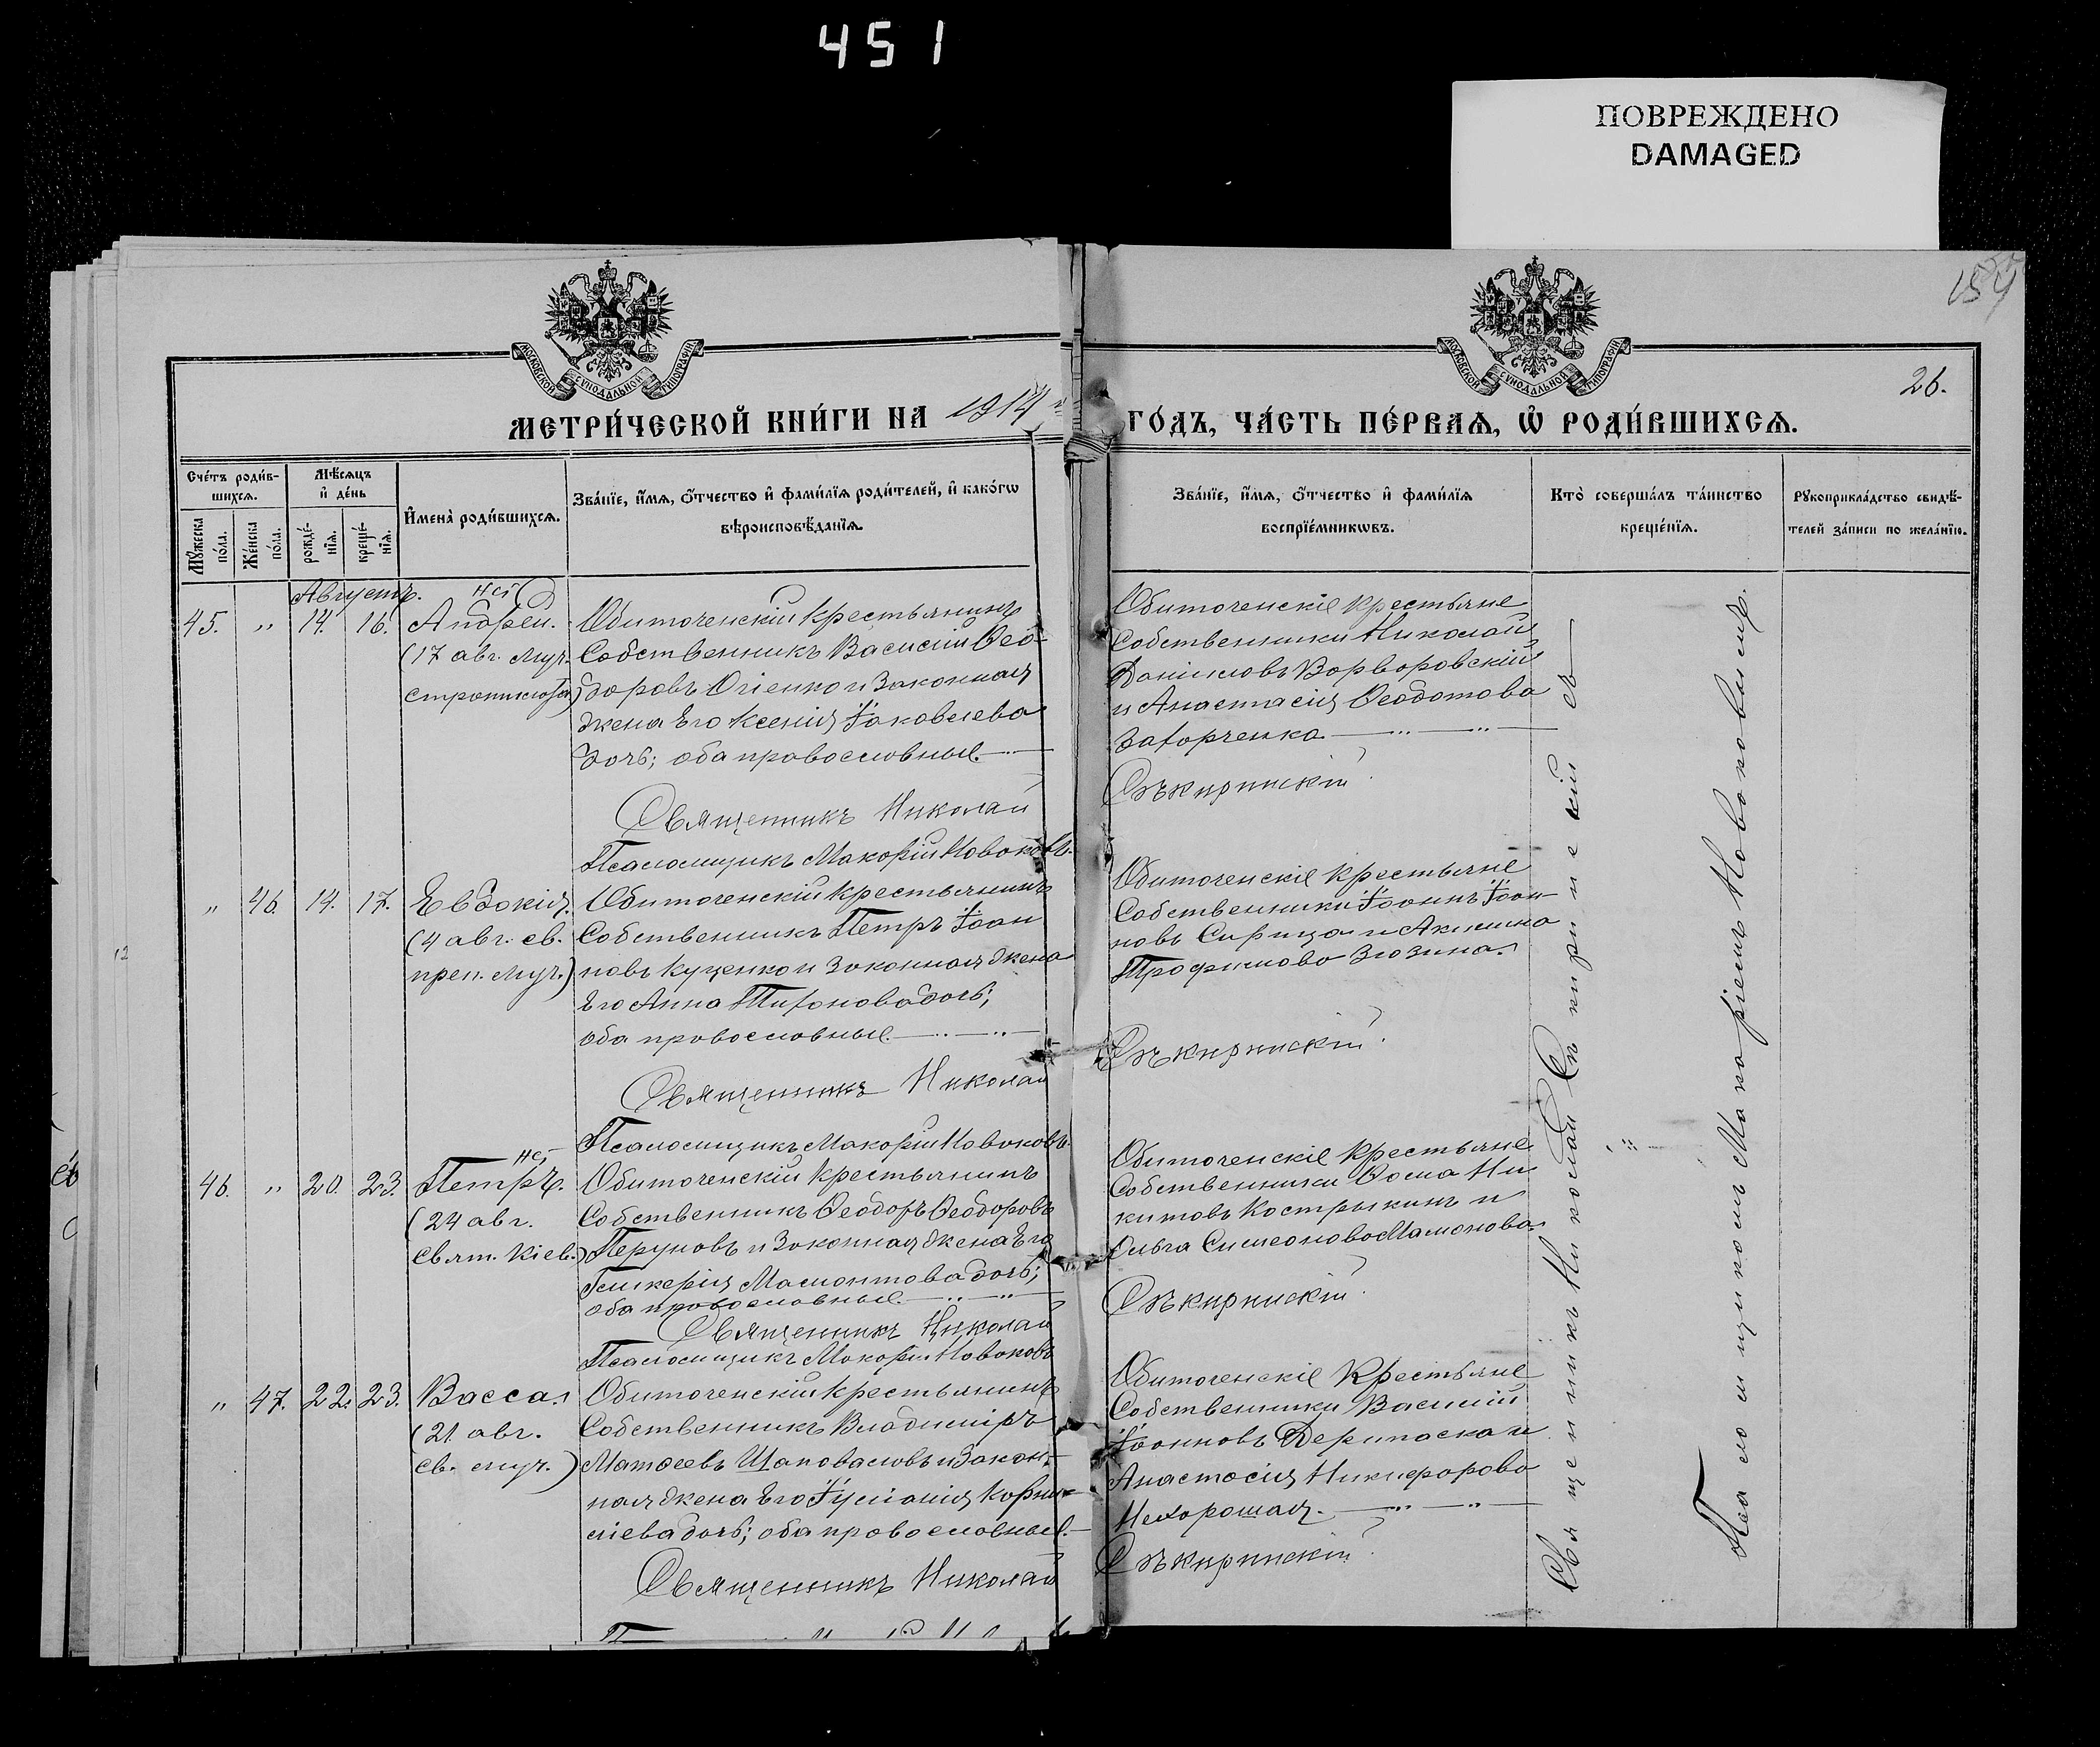 451
ПОВРЕЖДЕНО
DAMAGED
МОСКОВСКОЙ СѴНОДАЛЬНОЙ ТИПОГРАФІИ
МОСКОВСКОЙ СѴНОДАЛЬНОЙ ТИПОГРАФІИ
26.
МЕТРИ́ЧЕСКОЙ КНИ́ГИ НА 1914
ГО́ДЪ, ЧА́СТЬ ПЕ́РВАѦ, Ѡ҆ РОДИ́ВШИХСѦ.
Сче́тъ роди́в-
шихсѧ.
Мѣ́сѧцъ
и҆ де́нь
Мꙋ́жеска
по́ла.
Же́нска
по́ла.
рожде́-
нїѧ.
креще́-
нїѧ.
И҆мена̀ роди́вшихсѧ.
Зва́нїе, и҆́мѧ, ѻ҆́тчество и҆ фами́лїѧ роди́телей, и҆ како́гѡ
вѣроисповѣ́данїѧ.
Зва́нїе, и҆́мѧ, ѻ҆́тчество и҆ фами́лїѧ
воспрїе́мникѡвъ.
Кто̀ соверша́лъ та́инство
креще́нїѧ.
Рꙋкоприкла́дство свидѣ́-
телей за́писи по жела́нїю.
Августъ.
45. " 14. 16. Андрей.
(17 авг. муч.
стратилата)
Обиточенскій крестьянинъ
Собственникъ Василій Ѳео-
доровъ Огіенко и законная
жена его Ксенія Іаковлева
дочь; оба православные.
Священникъ Николай
Псаломщикъ Макарій Новаковъ.
Обиточенскіе крестьяне
Собственники Николай
Даніиловъ Варваровскій
и Анастасія Ѳеодотова
Захарченко
Сѣкиринскій
" 46. 14. 17. Евдокія.
(4 авг. св.
преп. муч.)
Обиточенскій крестьянинъ
Собственникъ Петръ Іоан
новъ Куценко и законная жена
его Анна Тихонова дочь;
оба православные.
Священникъ Николай
Псаломщикъ Макарій Новаковъ.
Обиточенскіе крестьяне
Собственники Іоаннъ Іоан-
новъ Сирица и Акилина
Трофимова Зюзина.
Сѣкиринскій
46. " 20. 23. Петръ.
(24 авг.
Свят. Кіев.)
Обиточенскій крестьянинъ
Собственникъ Ѳеодоръ Ѳеодоровъ
Перуновъ и законная жена его
Гликерія Мамонтова дочь;
оба православные.
Священникъ Николай
Псаломщикъ Макарій Новаковъ
Обиточенскіе крестьяне
Собственники Ѳома Ни
китовъ Кострыкинъ и
Ольга Симеонова Мамонова.
Сѣкиринскій
" 47. 22. 23. Васса.
(21 авг.
св. муч.)
Обиточенскій крестьянинъ
Собственникъ Владиміръ
Матѳеевъ Шаповаловъ и закон-
ная жена его Іуліанія Корни-
ліева дочь; оба православные.
Священникъ Николай
Обиточенскіе крестьяне
Собственники Василій
Іоанновъ Дерипаска и
Анастасія Никифорова
Нехорошая.
Сѣкиринскій
Священникъ Николай Сѣкиринскій съ
Псаломщикомъ Макаріемъ Новаковымъ.